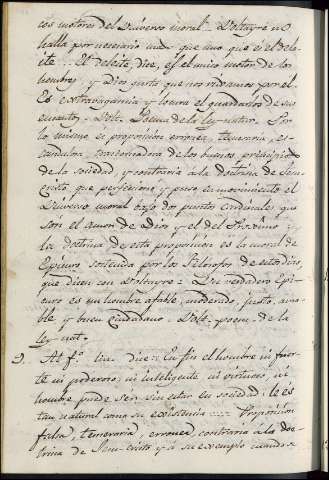 cos motores del Universo moral. Voltayre no
halla por necesario mas que uno que es el Dele-
ite: El deleite, dice, es el unico motor de los
hombres, y Dios gusta que nos movamos por el.
Es extravagancia y locura el guardarlos de sus
Volt. Poema de la ley natur. Por
lo mismo es proposicion erronea, temeraria, es-
candalosa, trastornadora de los buenos principios
de la sociedad, y contraria á la Doctrina de Jesu-
Cristo que perfecciono y puso en movimiento el
Universo moral bajo dos puntos cardinales, que
son el amor de Dios y el del Proximo y
la doctrina de esta proposicion es la moral de
Epicuro sostenida por los Filosofos de estos dias,
que dicen con Voltayre: Un verdadero Epi-
curo es un hombre afable, moderado, justo, ama-
ble y buen ciudadano. Volt. poema de la
Ley nat.
9. Al fº. dice: En fin el hombre ni fuer-
te ni poderoso, ni inteligente ni virtuoso, ni
hombre puede ser sin estar en sociedad: le es
tan natural como su existencia Proposicion
falsa, temeraria, erronea, contraria á la doc-
trina de Jesu-Cristo y á su exemplo